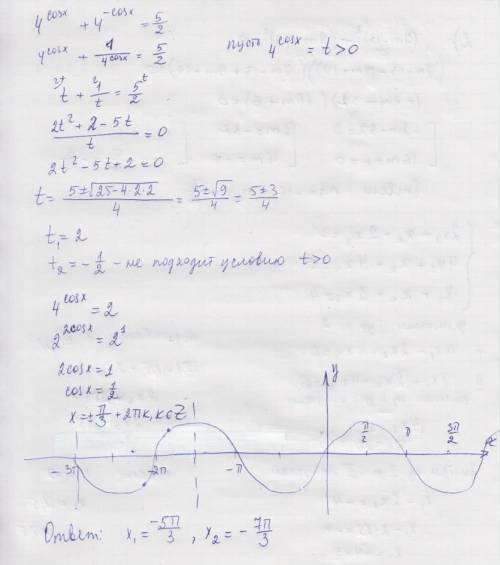 4^cosx + 4^-cosx = 5/2
4^cosx + 1/4^cosx = 5/2 пусть 4^cosx = t > 0
2t\ t + 2\ 1/t = 5/2 t\
(2t² + 2 - 5t)/t = 0
2t² - 5t + 2 = 0
t = (5 ± √(25 - 4·2·2))/4 = (5 ± √9)/4 = (5 ± 3)/4
t₁ = 2
t₂ = - 1/2 - не подходит условию t > 0
4^cosx = 2
2^2cosx = 2¹
2cosx = 1
cosx = 1/2
x = ± π/3 + 2πk, k∈Z
y
π/2 π 3π/2 x
- 3π - 2π - π
Ответ: x₁ = -5π/3 , x₂ = - 7π/3